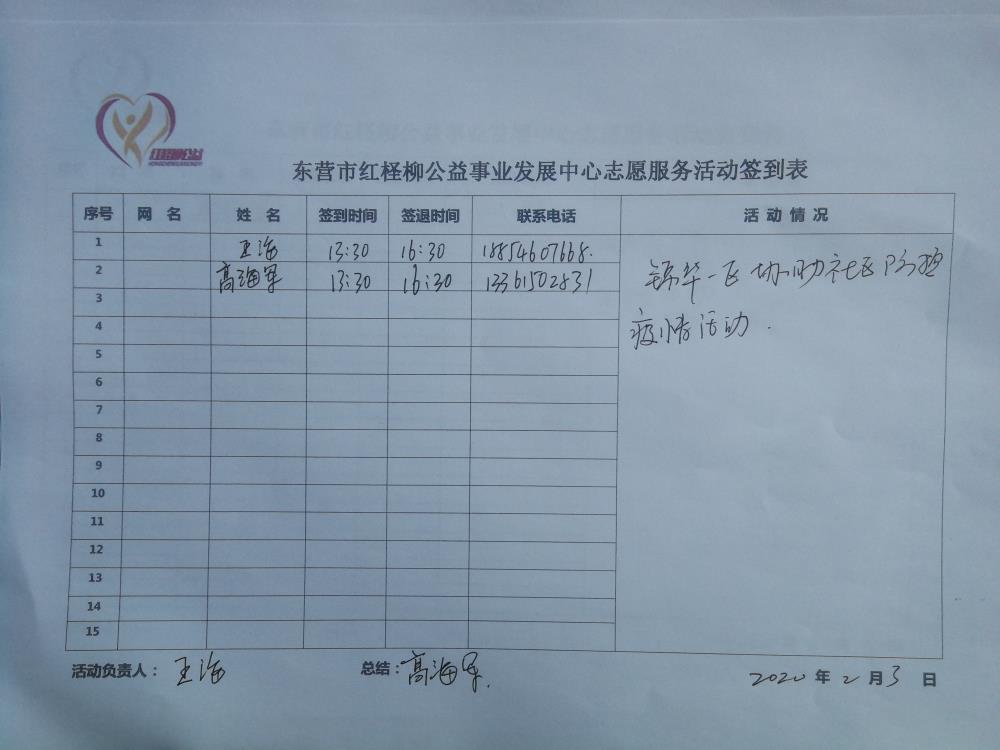 红柽柳公益
东营市红柽柳公益事业发展中心志愿服务活动签到表
序号 网 名 姓 名 签到时间 签退时间 联系电话 活 动 情 况
1 王海 13:30 16:30 18854607668.
2 高海军 13:30 16:30 13361502831
锦华一区协助社区防控
疫情活动.
3
4
5
6
7
8
9
10
11
12
13
14
15
活动负责人: 王海 总结: 高海军. 2020 年 2 月 3 日